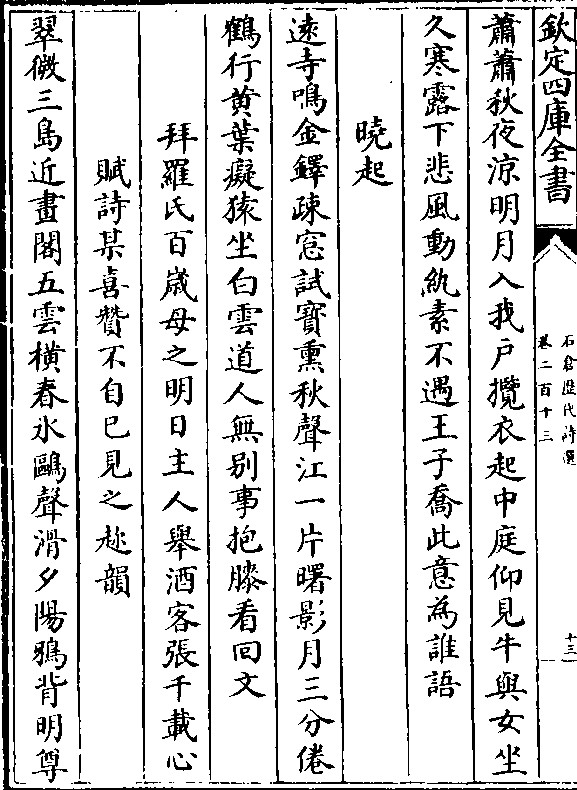 欽定四庫全書
石倉歴代詩選
卷二百十三
十三
蕭蕭秋夜涼明月入我戸攬衣起中庭仰見牛與女坐
久寒露下悲風動紈素不遇王子喬此意為誰語
曉起
遠寺鳴金鐸疎窓試寳熏秋聲江一片曙影月三分倦
鶴行黄葉癡猿坐白雲道人無别事抱膝看回文
拜羅氏百歳母之明日主人舉酒客張千載心
賦詩某喜贊不自已見之趂韻
翠微三島近畫閣五雲横春氷鷗聲滑夕陽鴉背明尊